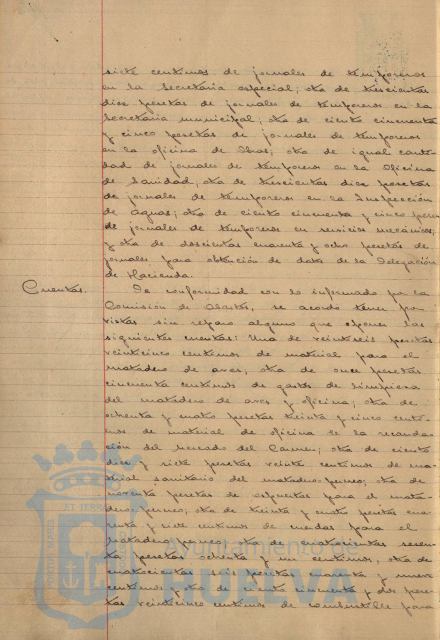 siete centimos de jornales de temporeros
en la Secretaria especial; otra de trescientas
diez pesetas de jornales de temporeros en la
Secretaria municipal; otra de ciento cincuenta
y cinco pesetas de jornales de temporeros
en la oficina de Obras; otra de igual canti-
dad de jornales de temporeros en la Oficina
de Sanidad; otra de trescientas diez pesetas
de jornales de temporeros en la Inspección
de Aguas; otra de ciento cincuenta y cinco
de jornales de temporeros en servicios mecánicos;
y otra de doscientas cuarenta y ocho pesetas de
jornales para obtención de datos de la Delegación
de Hacienda.
Cuentas.
De conformidad con lo informado por la
Comisión de se acordó tener por
vistas sin reparo alguno que oponer las
siguientes cuentas: Una de veintiseis pesetas
veinticinco centimos de material para el
matadero de aves; otra de once pesetas
cincuenta centimos de gastos de limpieza
del matadero de aves y oficina; otra de
ochenta y cuatro pesetas treinta y cinco centi-
mos de material de oficina de la recauda-
ción del Mercado del Carmen; otra de ciento
diez y siete pesetas veinte centimos de ma-
terial sanitario del matadero; otra de
noventa pesetas de para el mata-
dero; otra de treinta y cuatro pesetas cua-
renta y siete centimos de para el
matadero; otra de cuatrocientas seten-
ta pesetas ochenta y un centimos; otra de
cuatrocientas seis pesetas cuarenta y nueve
centimos y otra de ciento cincuenta y dos pese-
tas veinticinco centimos de combustible para
Ayuntamiento de
HUELVA